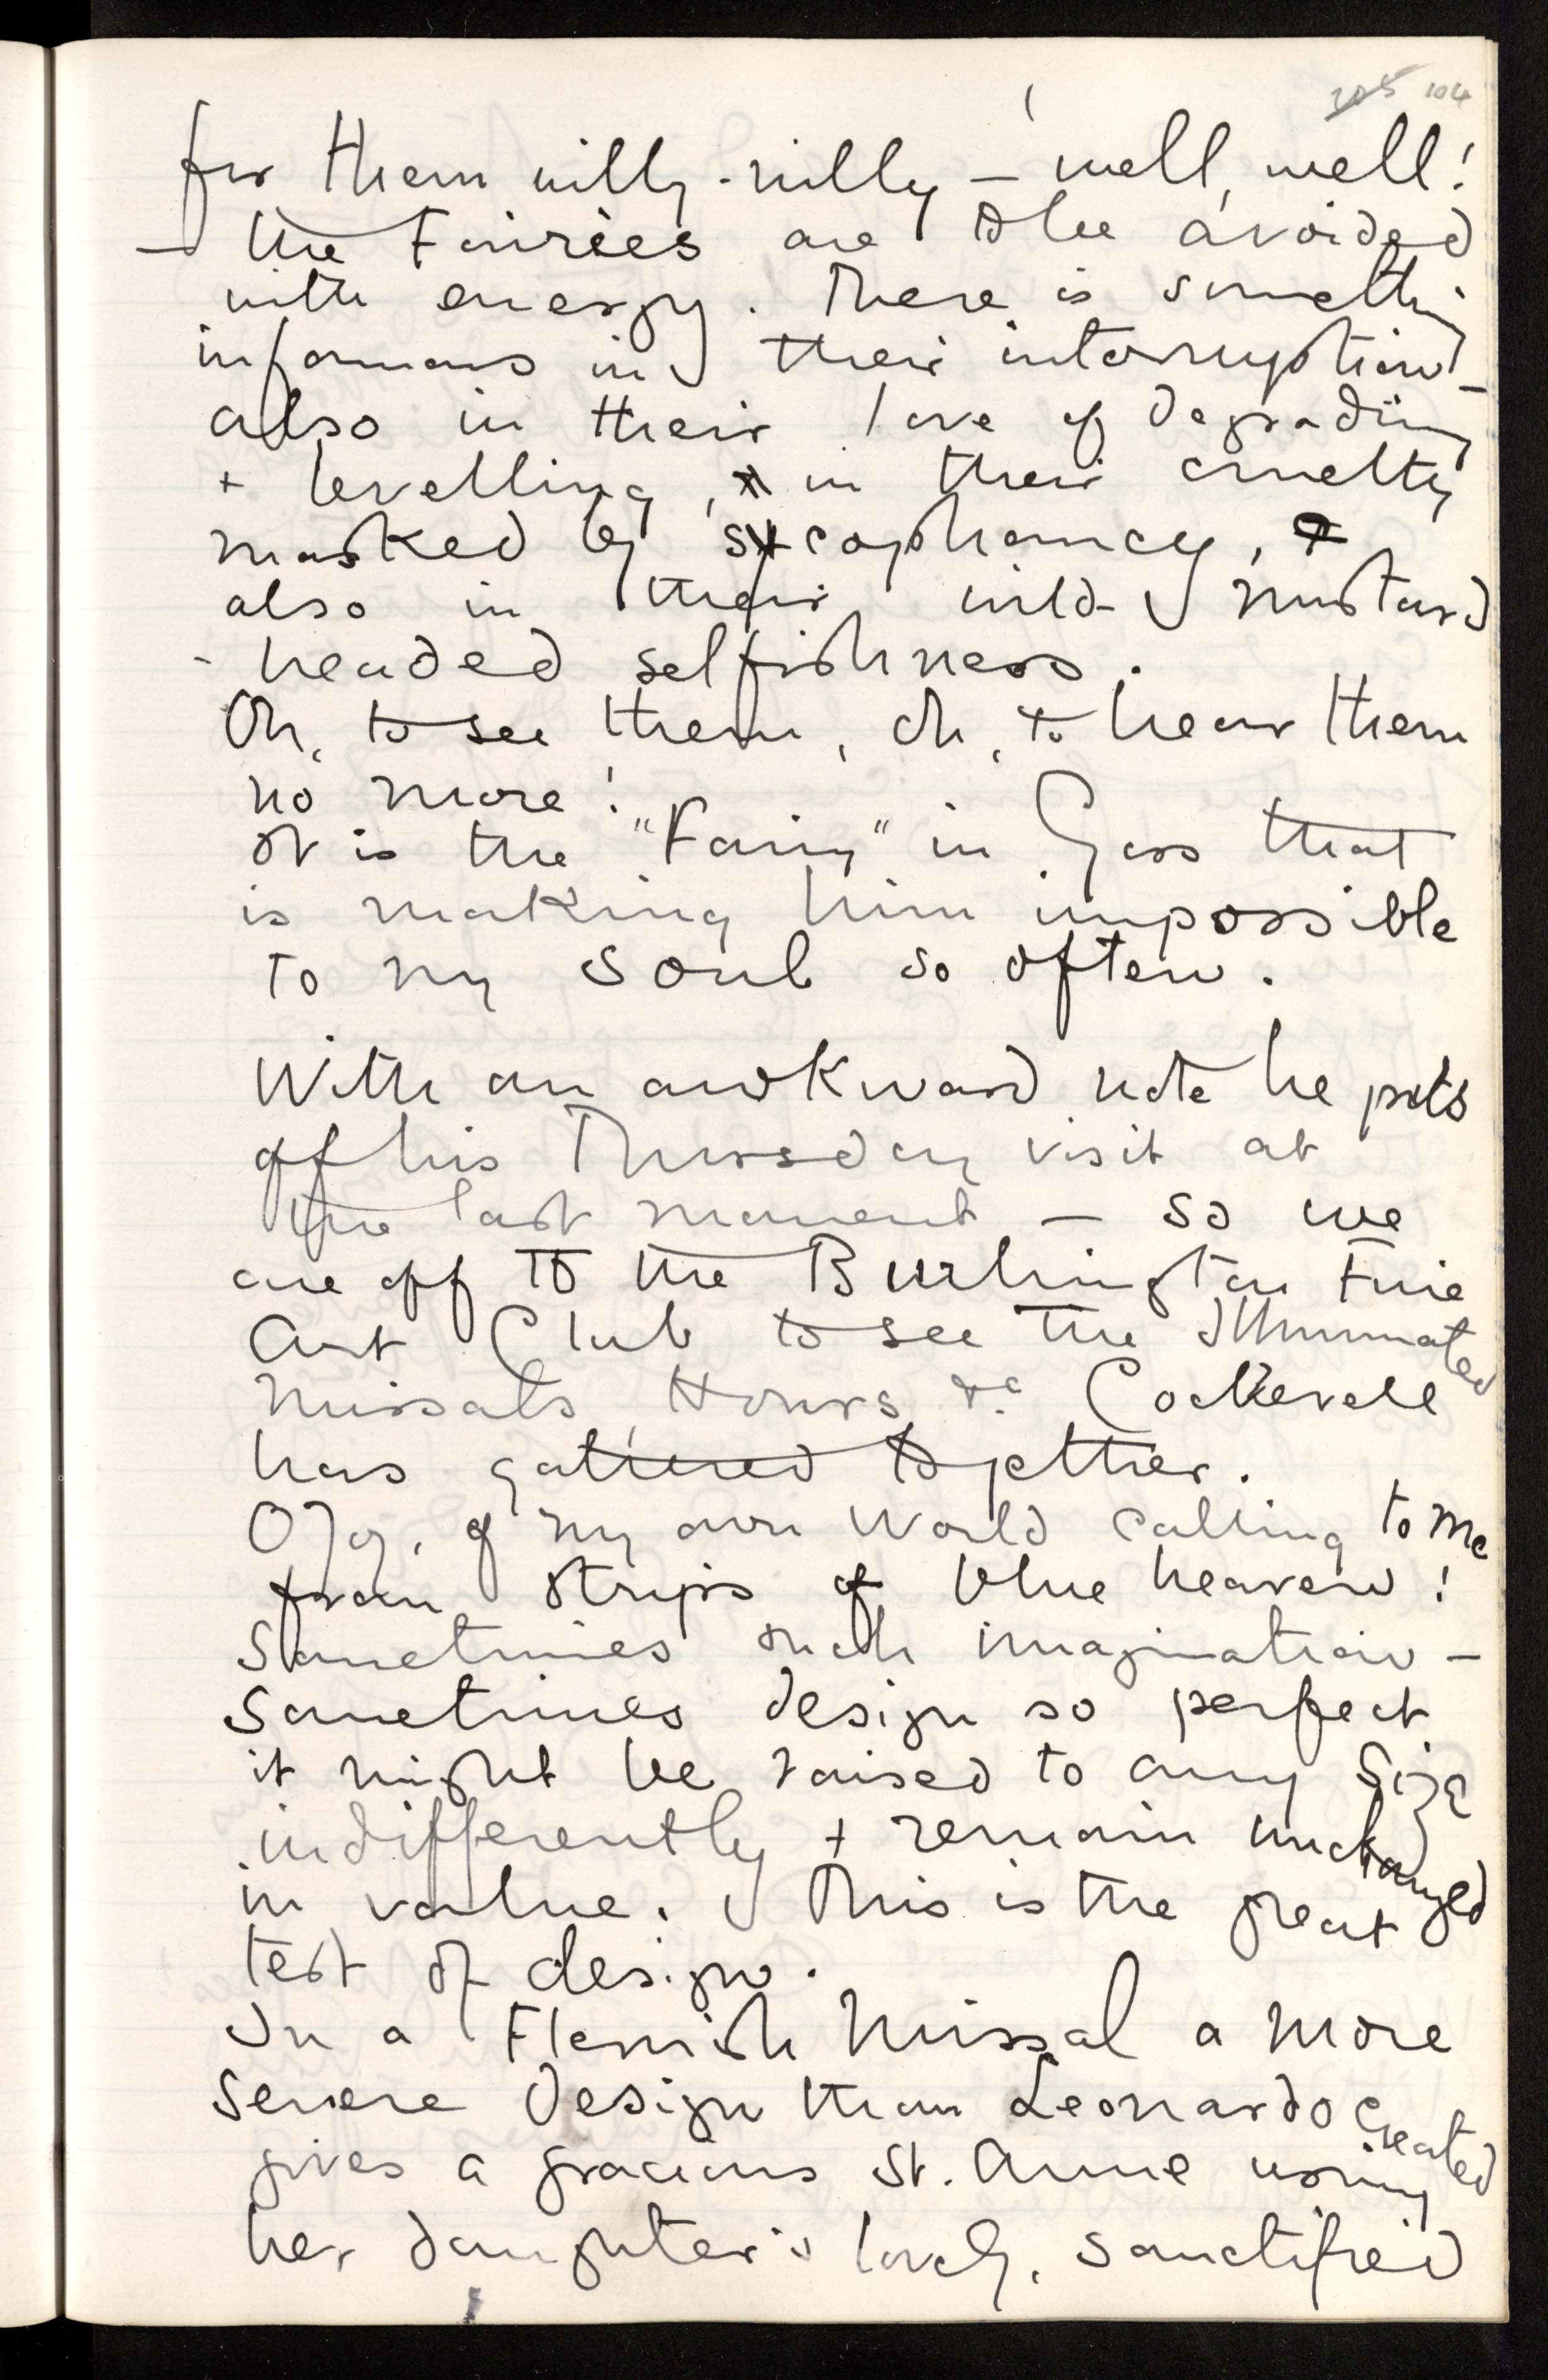 205 104
for them willy-nilly — well, well!
— the Fairies are to be avoided
with energy. There is something
infamous in their interruption —
also in their love of degrading
+ levelling, + in their cruelty
masked by sycophancy, +
also in their wild-mustard
- headed selfishness.
Oh, to see them, oh, to hear them
no more!
It is the "Fairy" in Goss that
is making him impossible
to my soul so often.
With an awkward note he puts
off his Thursday visit at
the last moment — so we
are off to the Burlington Fine
Art Club to see the Illuminated
Missals, Hours &c Cockerell
has gathered together.
O Joy, of my own World calling to me
from strips of blue heaven!
Sometimes such imagination —
Sometimes design so perfect
it might be raised to any size
indifferently + remain unchanged
in value. This is the great
test of design.
In a Flemish Missal a more
severe design than Leonardo created
gives a gracious St. Anne using
her daughter's lovely, sanctified